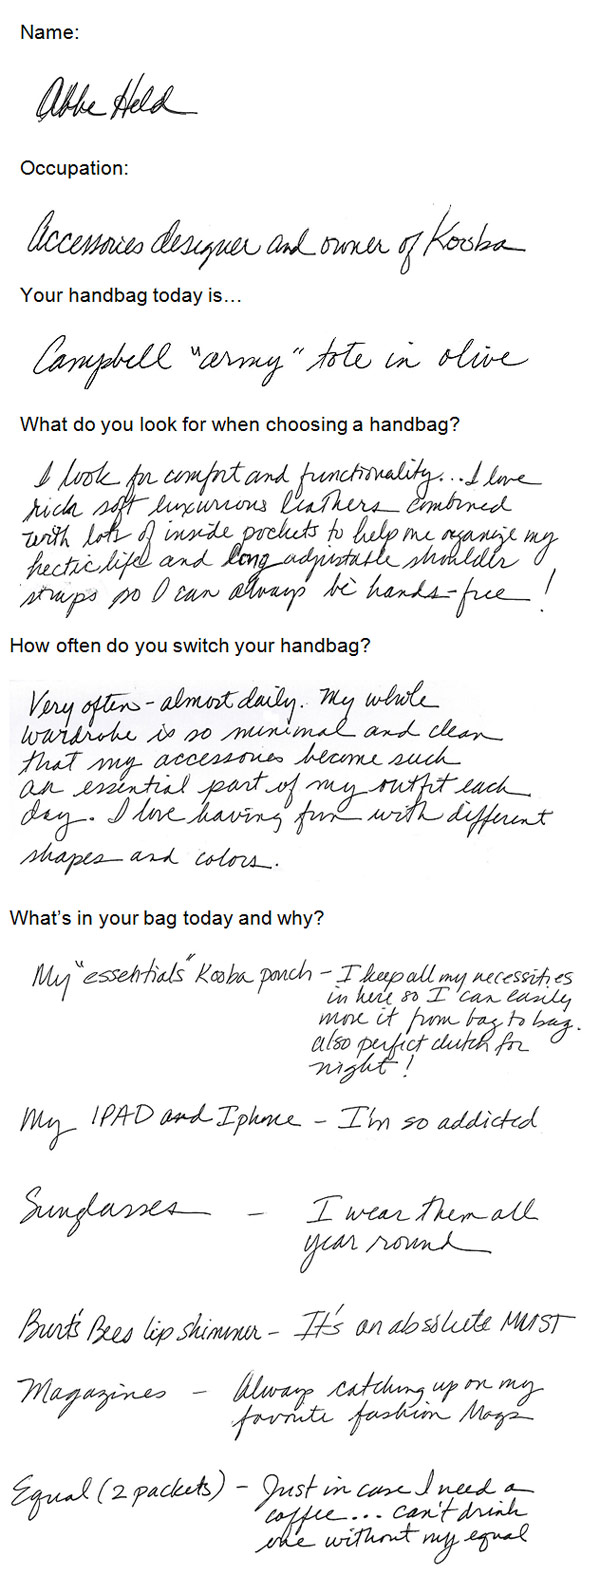 Name:
Abbe Held
Occupation:
Accessories designer and owner of Kooba
Your handbag today is…
Campbell "army" tote in olive
What do you look for when choosing a handbag?
I look for comfort and functionality... I love
rich soft luxurious leathers combined
with lots of inside pockets to help me organize my
hectic life and long adjustable shoulder
straps so I can always be hands-free!
How often do you switch your handbag?
Very often - almost daily. My whole
wardrobe is so minimal and clean
that my accessories become such
an essential part of my outfit each
day. I love having fun with different
shapes and colors.
What's in your bag today and why?
My "essentials" Kooba pouch - I keep all my necessities
in here so I can easily
move it from bag to bag.
also perfect clutch for
night!
My IPAD and Iphone - I'm so addicted
Sunglasses - I wear them all
year round
Burt's Bees lip shimmer - It's an absolute MUST
Magazines - Always catching up on my
favorite fashion Mags
Equal (2 packets) - Just in case I need a
coffee... can't drink
one without my equal